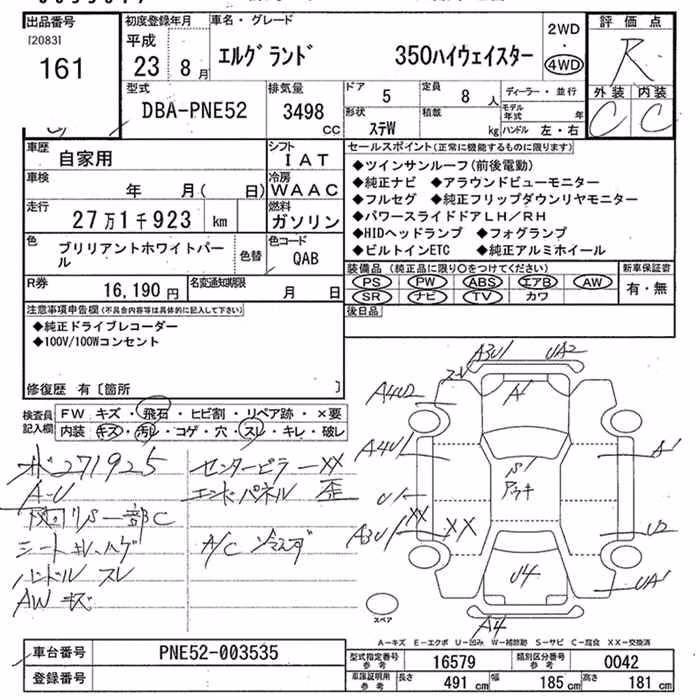 出品番号
[2083]
161
初度登録年月
平成
23 8月
車名・グレード
エルグランド 350ハイウェイスター
2WD
・
4WD
評価点
R
外装 内装
C C
型式
DBA-PNE52
排気量
3498 CC
ドア 5
定員 8人
形状 ステW
積載 kg
ディーラー・並行
モデル年式 年
ハンドル 左・右
車歴
自家用
シフト
IAT
車検
年 月( 日)
冷房
WAAC
走行
27万1千923 km
燃料
ガソリン
色
ブリリアントホワイトパール
色替
色コード
QAB
R券
16,190円
名変通知期限
月 日
セールスポイント(正常に機能するものに限ります)
◆ツインサンルーフ(前後電動)
◆純正ナビ ◆アラウンドビューモニター
◆フルセグ ◆純正フリップダウンリヤモニター
◆パワースライドドアLH/RH
◆HIDヘッドランプ ◆フォグランプ
◆ビルトインETC ◆純正アルミホイール
装備品(純正品に限り○をつけてください)
PS PW ABS エアB AW
SR ナビ TV カワ
新車保証書
有・無
後日品
注意事項申告欄(不具合内容等は具体的に記入して下さい)
◆純正ドライブレコーダー
◆100V/100Wコンセント
修復歴 有〔箇所 〕
検査員記入欄
FW キズ・飛石・ヒビ割・リペア跡・×要
内装 キズ・汚レ・コゲ・穴・スレ・キレ・破レ
271925
A-U
一部C
シート キレ、ハゲ
ハンドル スレ
AW キズ
センターピラーXX
エンドパネル 歪
A/C 冷エズ
A3U/ UA2
A4U2
A/
A4U/
A/
S/
アウキ
U/
A3U/
XX
XX
U2
U4
UA/
A4
スペア
A-キズ E-エクボ U-凹み W-補修跡 S-サビ C-腐食 XX-交換済
車台番号
PNE52-003535
登録番号
型式指定番号 参考
16579
類別区分番号 参考
0042
車庫証明用 参考
長さ 491 cm
幅 185 cm
高さ 181 cm